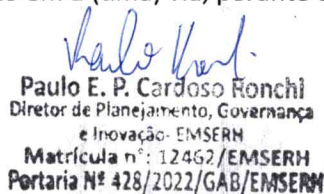 em 2 (uma) via, perante
Paulo E. P. Cardoso Ronchi
Diretor de Planejamento, Governança
e Inovação- EMSERH
Matrícula n°: 12462/EMSERH
Portaria Nº 428/2022/GAB/EMSERH